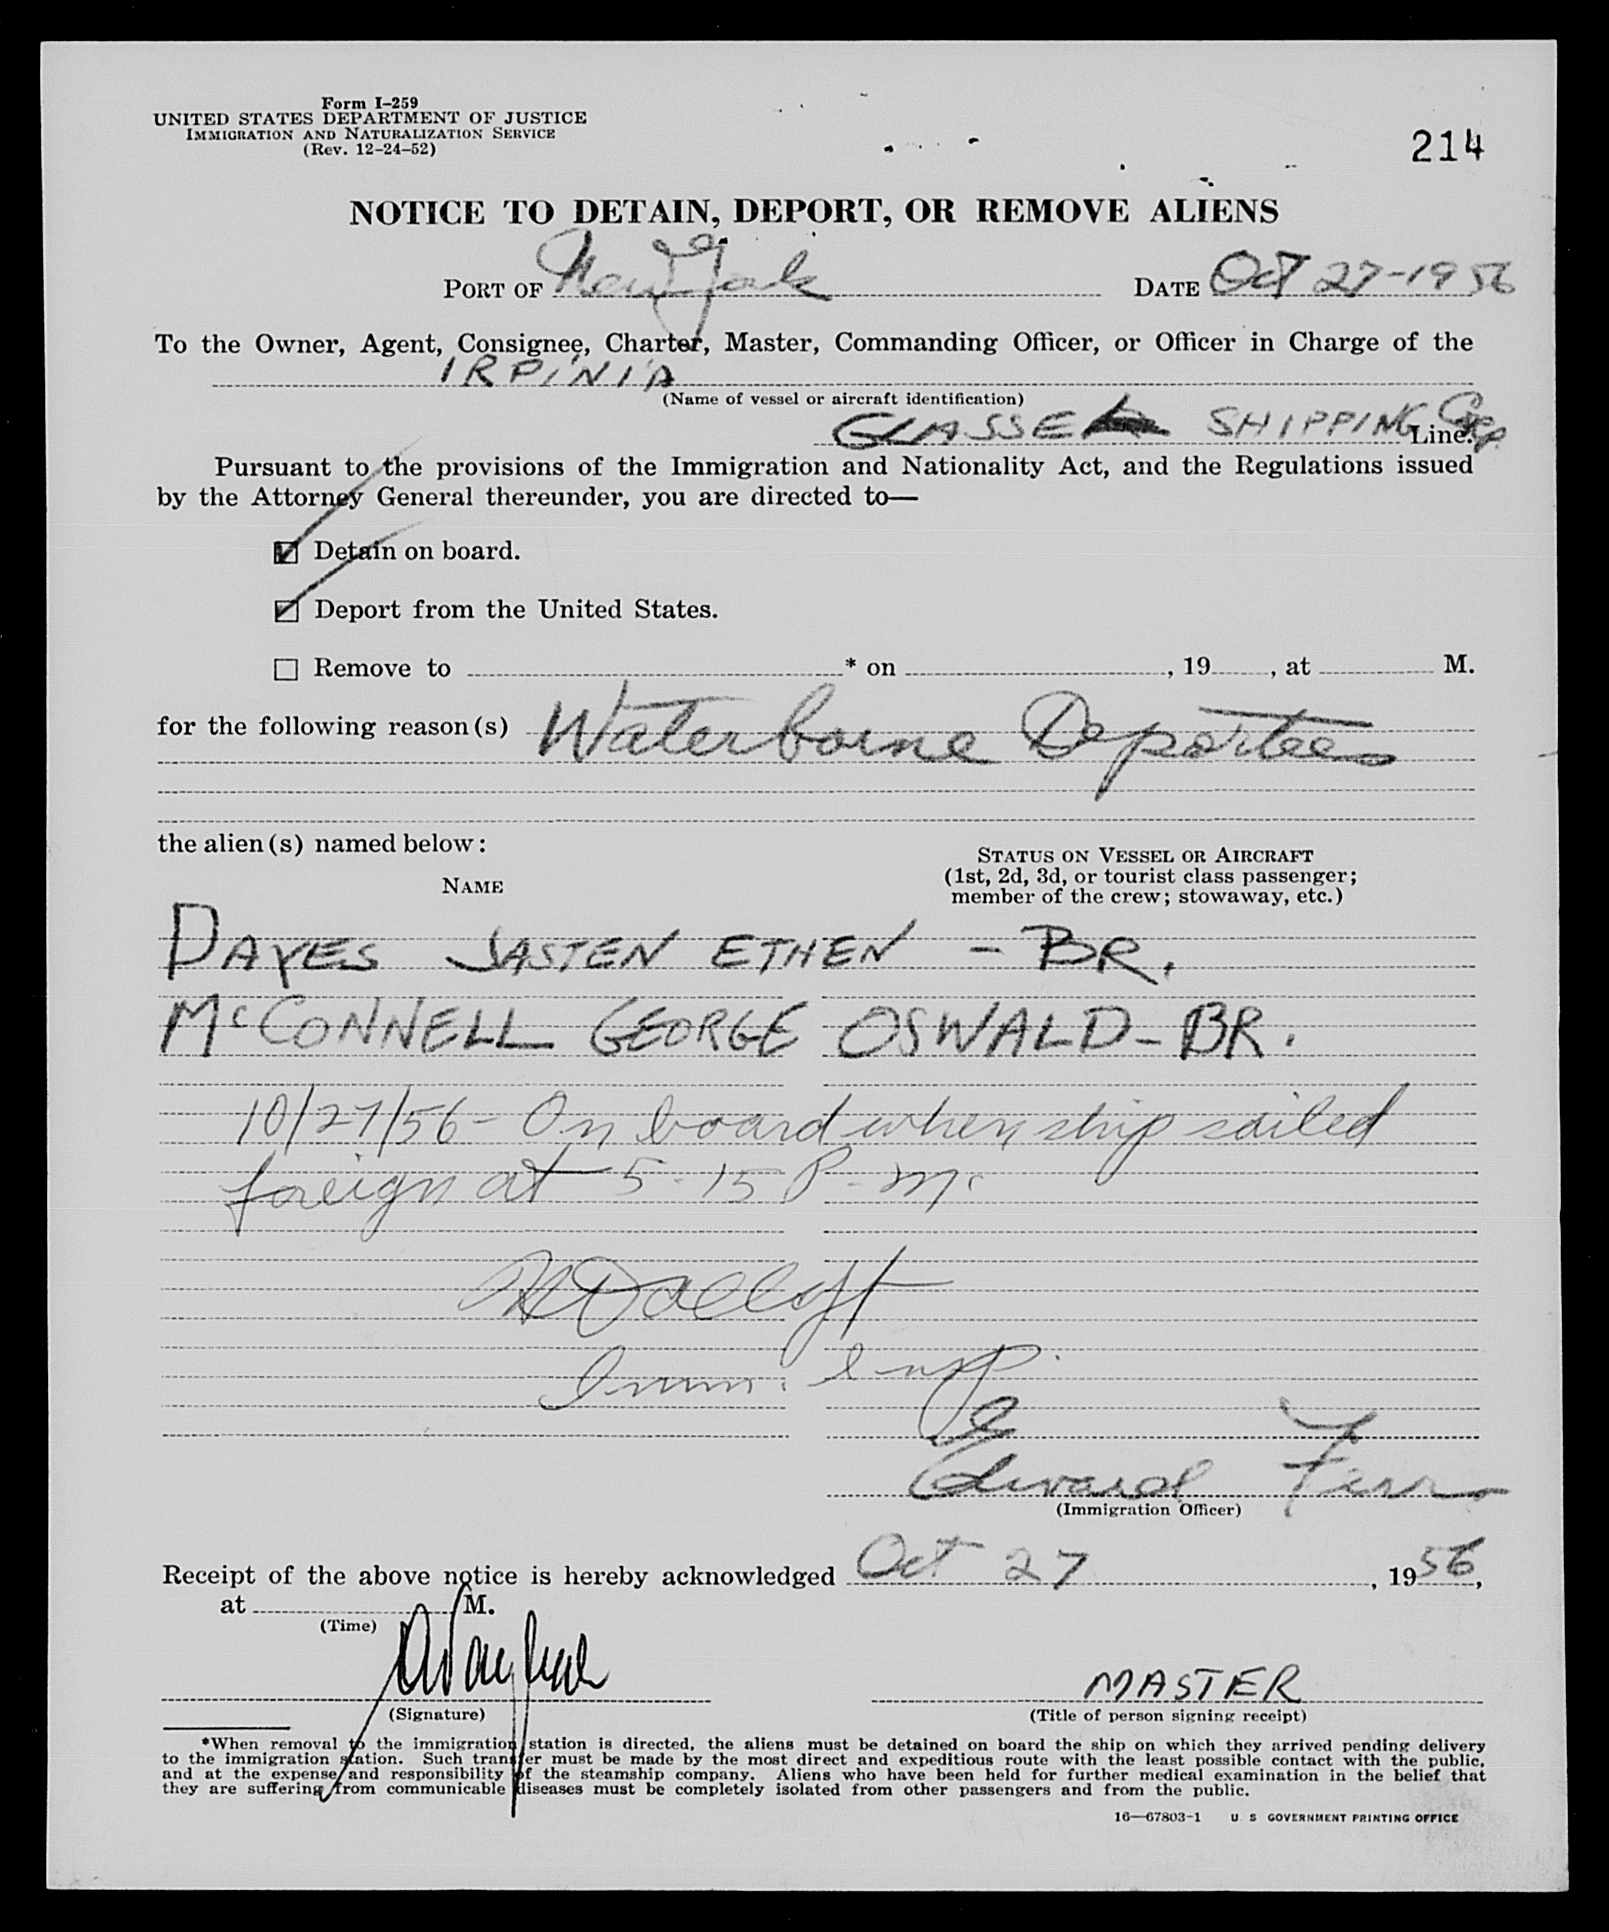 Form I-259
UNITED STATES DEPARTMENT OF JUSTICE
IMMIGRATION AND NATURALIZATION SERVICE
(Rev. 12-24-52)
214
NOTICE TO DETAIN, DEPORT, OR REMOVE ALIENS
PORT OF New York DATE Oct 27-1956
To the Owner, Agent, Consignee, Charter, Master, Commanding Officer, or Officer in Charge of the
IRPINIA
(Name of vessel or aircraft identification)
SHIPPING Corp. Line.
Pursuant to the provisions of the Immigration and Nationality Act, and the Regulations issued
by the Attorney General thereunder, you are directed to—
Detain on board.
Deport from the United States.
Remove to * on , 19 , at M.
for the following reason(s) Waterborne Deportees
the alien(s) named below:
STATUS ON VESSEL OR AIRCRAFT
(1st, 2d, 3d, or tourist class passenger;
member of the crew; stowaway, etc.)
NAME
DAYES JASTEN ETHEN - BR.
McCONNELL GEORGE OSWALD - BR.
10/27/56 - On board when ship sailed
foreign at 5-15 P.M.
Imm. Insp.
Edward
(Immigration Officer)
Receipt of the above notice is hereby acknowledged Oct 27, 1956,
at M.
(Time)
MASTER
(Signature) (Title of person signing receipt)
*When removal to the immigration station is directed, the aliens must be detained on board the ship on which they arrived pending delivery
to the immigration station. Such transfer must be made by the most direct and expeditious route with the least possible contact with the public,
and at the expense and responsibility of the steamship company. Aliens who have been held for further medical examination in the belief that
they are suffering from communicable diseases must be completely isolated from other passengers and from the public.
16—67803-1 U. S. GOVERNMENT PRINTING OFFICE